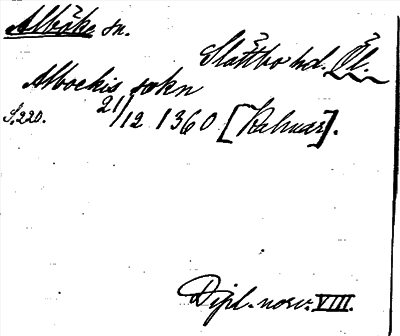 Alböke sn.
Slättbo hd. Öl.
Alboekis sokn
S. 220. 21/12 1360 [Kalmar].
Dipl. norv. VIII.